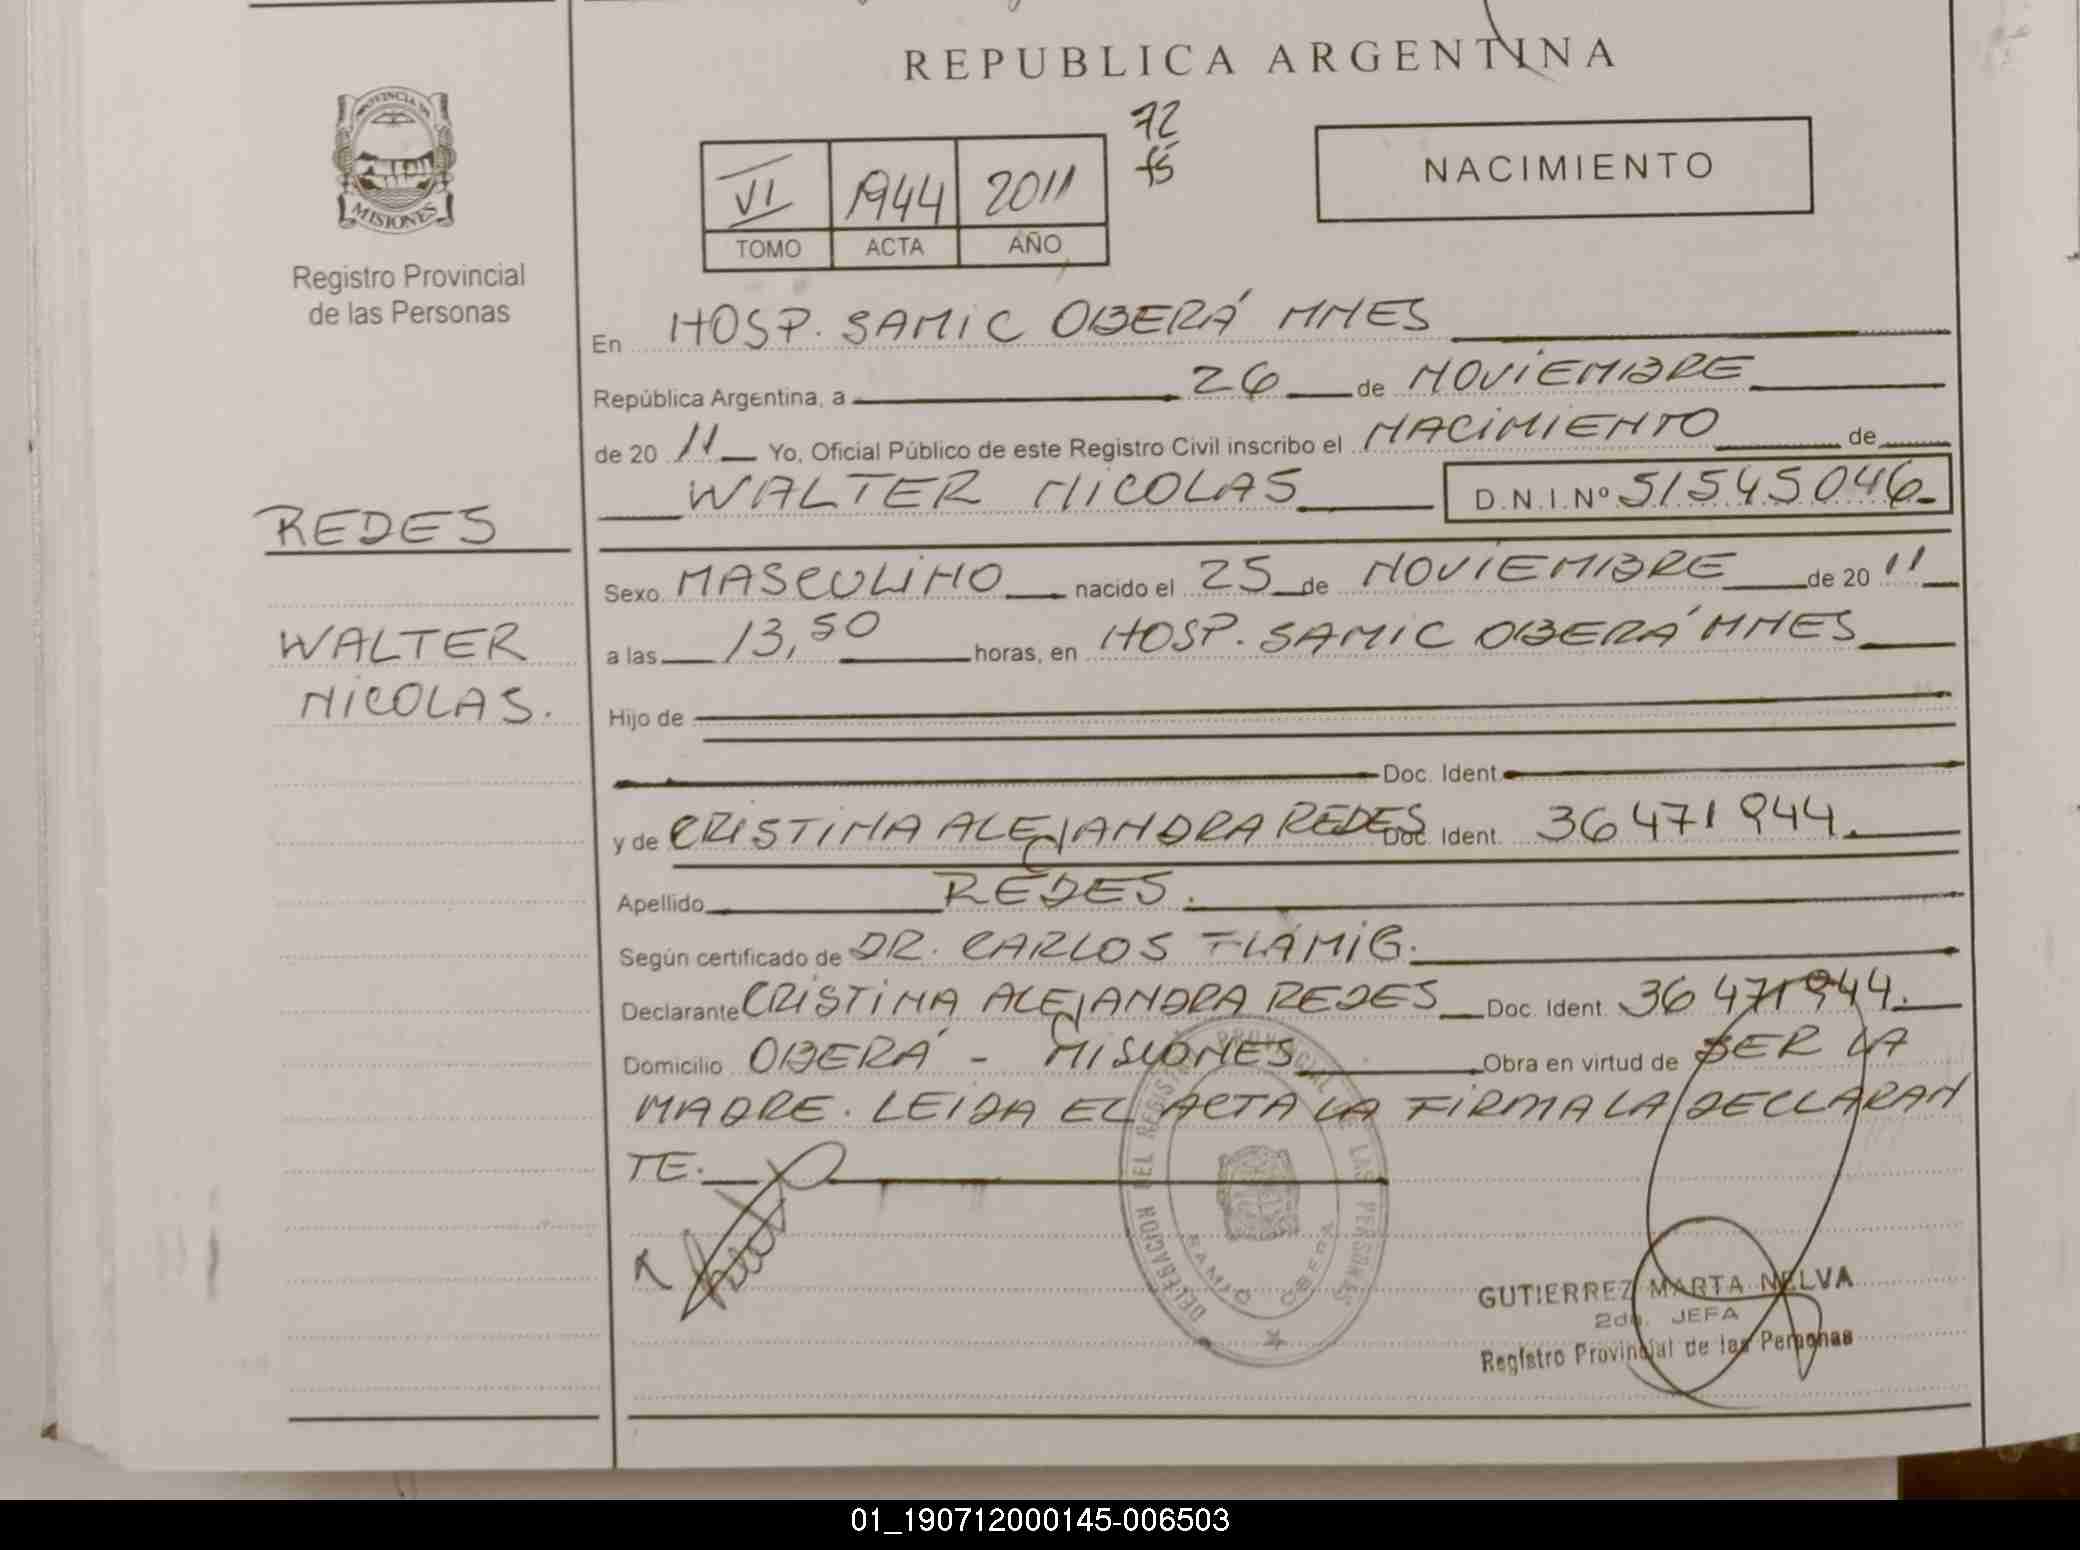 REPUBLICA ARGENTINA
PROVINCIA DE
MISIONES
Registro Provincial
de las Personas
72
fs
VI 1944 2011
TOMO ACTA AÑO
NACIMIENTO
En HOSP. SAMIC OBERÁ MNES
República Argentina, a 26 de NOVIEMBRE
de 20 11 Yo, Oficial Público de este Registro Civil inscribo el NACIMIENTO de
WALTER NICOLAS D.N.I.Nº 51545046
REDES
WALTER
NICOLAS.
Sexo MASCULINO nacido el 25 de NOVIEMBRE de 20 11
a las 13,50 horas, en HOSP. SAMIC OBERÁ MNES
Hijo de
Doc. Ident.
y de CRISTINA ALEJANDRA REDES Doc. Ident. 36471944.
Apellido REDES.
Según certificado de DR. CARLOS FLAMIG.
Declarante CRISTINA ALEJANDRA REDES Doc. Ident. 36471944.
Domicilio OBERÁ - MISIONES Obra en virtud de SER LA
MADRE. LEIDA EL ACTA LA FIRMA LA DECLARAN
TE.
DELEGACION DEL REGISTRO PROVINCIAL DE LAS PERSONAS
SAMIC OBERA
GUTIERREZ MARTA NELVA
2da. JEFA
Registro Provincial de las Personas
01_190712000145-006503